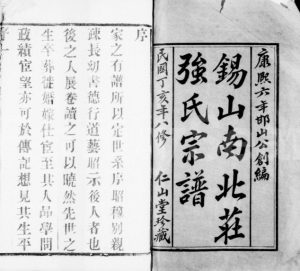 康熙六年邯山公創編
錫山南北莊
強氏宗譜
民國丁亥年八修
仁山堂珍藏
序
家之有譜所以定世系序昭穆别親
疎長幼書德行道藝昭示後人者也
後之人展卷讀之可以曉然先世之
生卒葬徙婚嫁仕宦至其人品學問
政績宦望亦可於傳記想見其生平